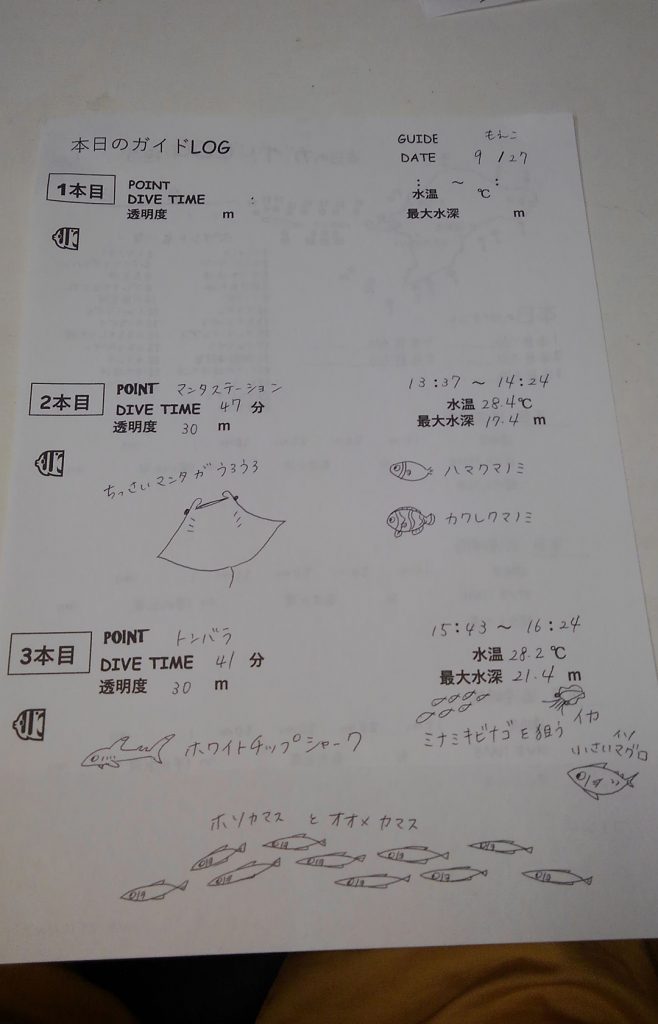 本日のガイドLOG
GUIDE もえこ
DATE 9/27
1本目
POINT
DIVE TIME :
透明度 m
: ～ :
水温 ℃
最大水深 m
2本目
POINT マンタステーション
DIVE TIME 47 分
透明度 30 m
13:37 ～ 14:24
水温 28.4℃
最大水深 17.4 m
ちっさいマンタがうろうろ
ハマクマノミ
カクレクマノミ
3本目
POINT トンバラ
DIVE TIME 41 分
透明度 30 m
15:43 ～ 16:24
水温 28.2℃
最大水深 21.4 m
ホワイトチップシャーク
ミナミキビナゴを狙う
イカ
小いさいイソマグロ
ホソカマスとオオメカマス